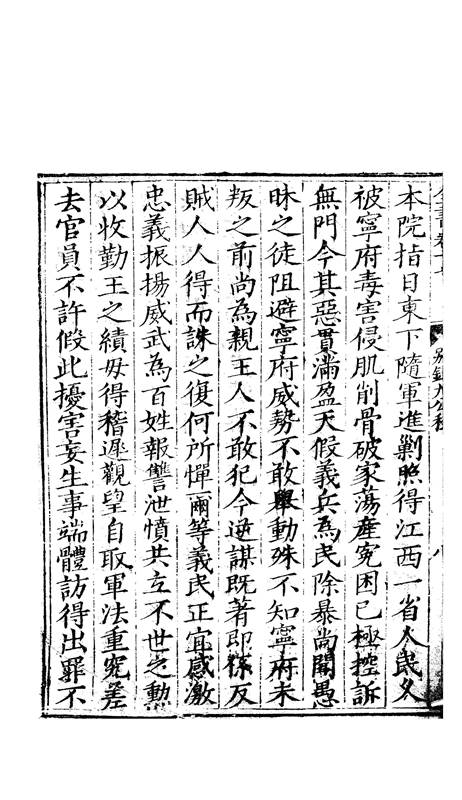 本院指日東下隨軍進剿照得江西一省人民久
被寧府毒害侵肌削骨破家蕩產寃困已極控訴
無門今其惡貫滿盈天假義兵為民除暴尚聞愚
昧之徒阻避寧府威勢不敢舉動殊不知寧府未
叛之前尚為親王人不敢犯今逆謀既著即係反
賊人人得而誅之復何所憚爾等義民正宜感激
忠義振揚威武為百姓報讐泄憤共立不世之勳
以收勤王之績毋得稽遲觀望自取軍法重究差
去官員不許假此擾害妄生事端體訪得出罪不